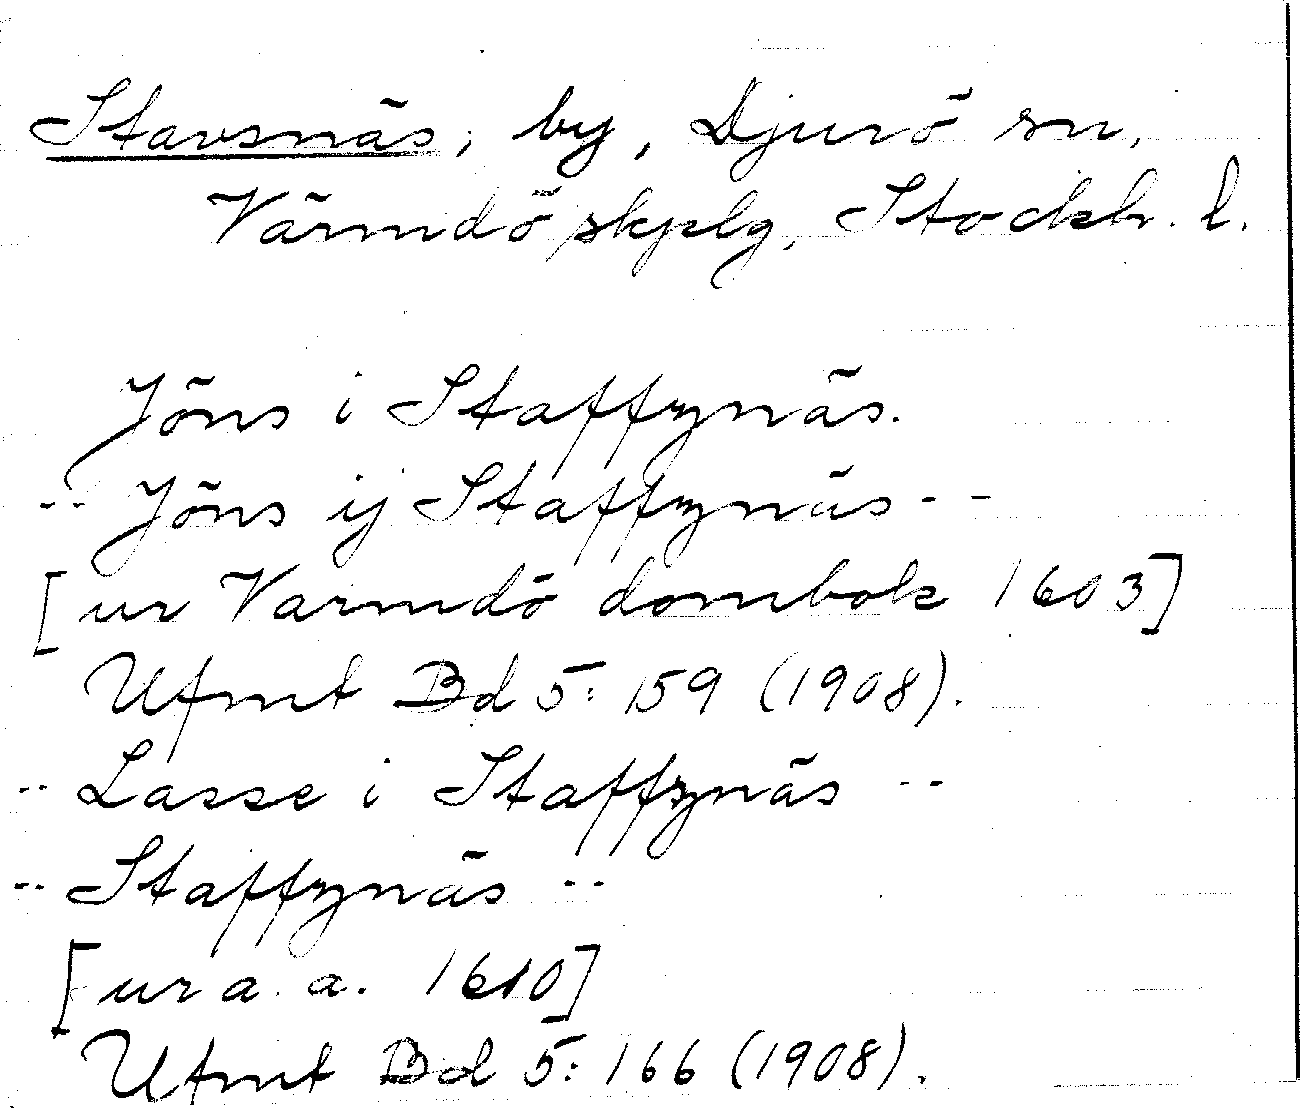 Stavsnäs, by, Djurö sn,
Värmdö skplg, Stockh. l.
Jöns i Staffznäs.
-- Jöns ij Staffznäs --
[ur Värmdö dombok 1603]
Ufmt Bd 5: 159 (1908).
-- Lasse i Staffznäs --
-- Staffznäs --
[ur a. a. 1610]
Ufmt Bd 5: 166 (1908).